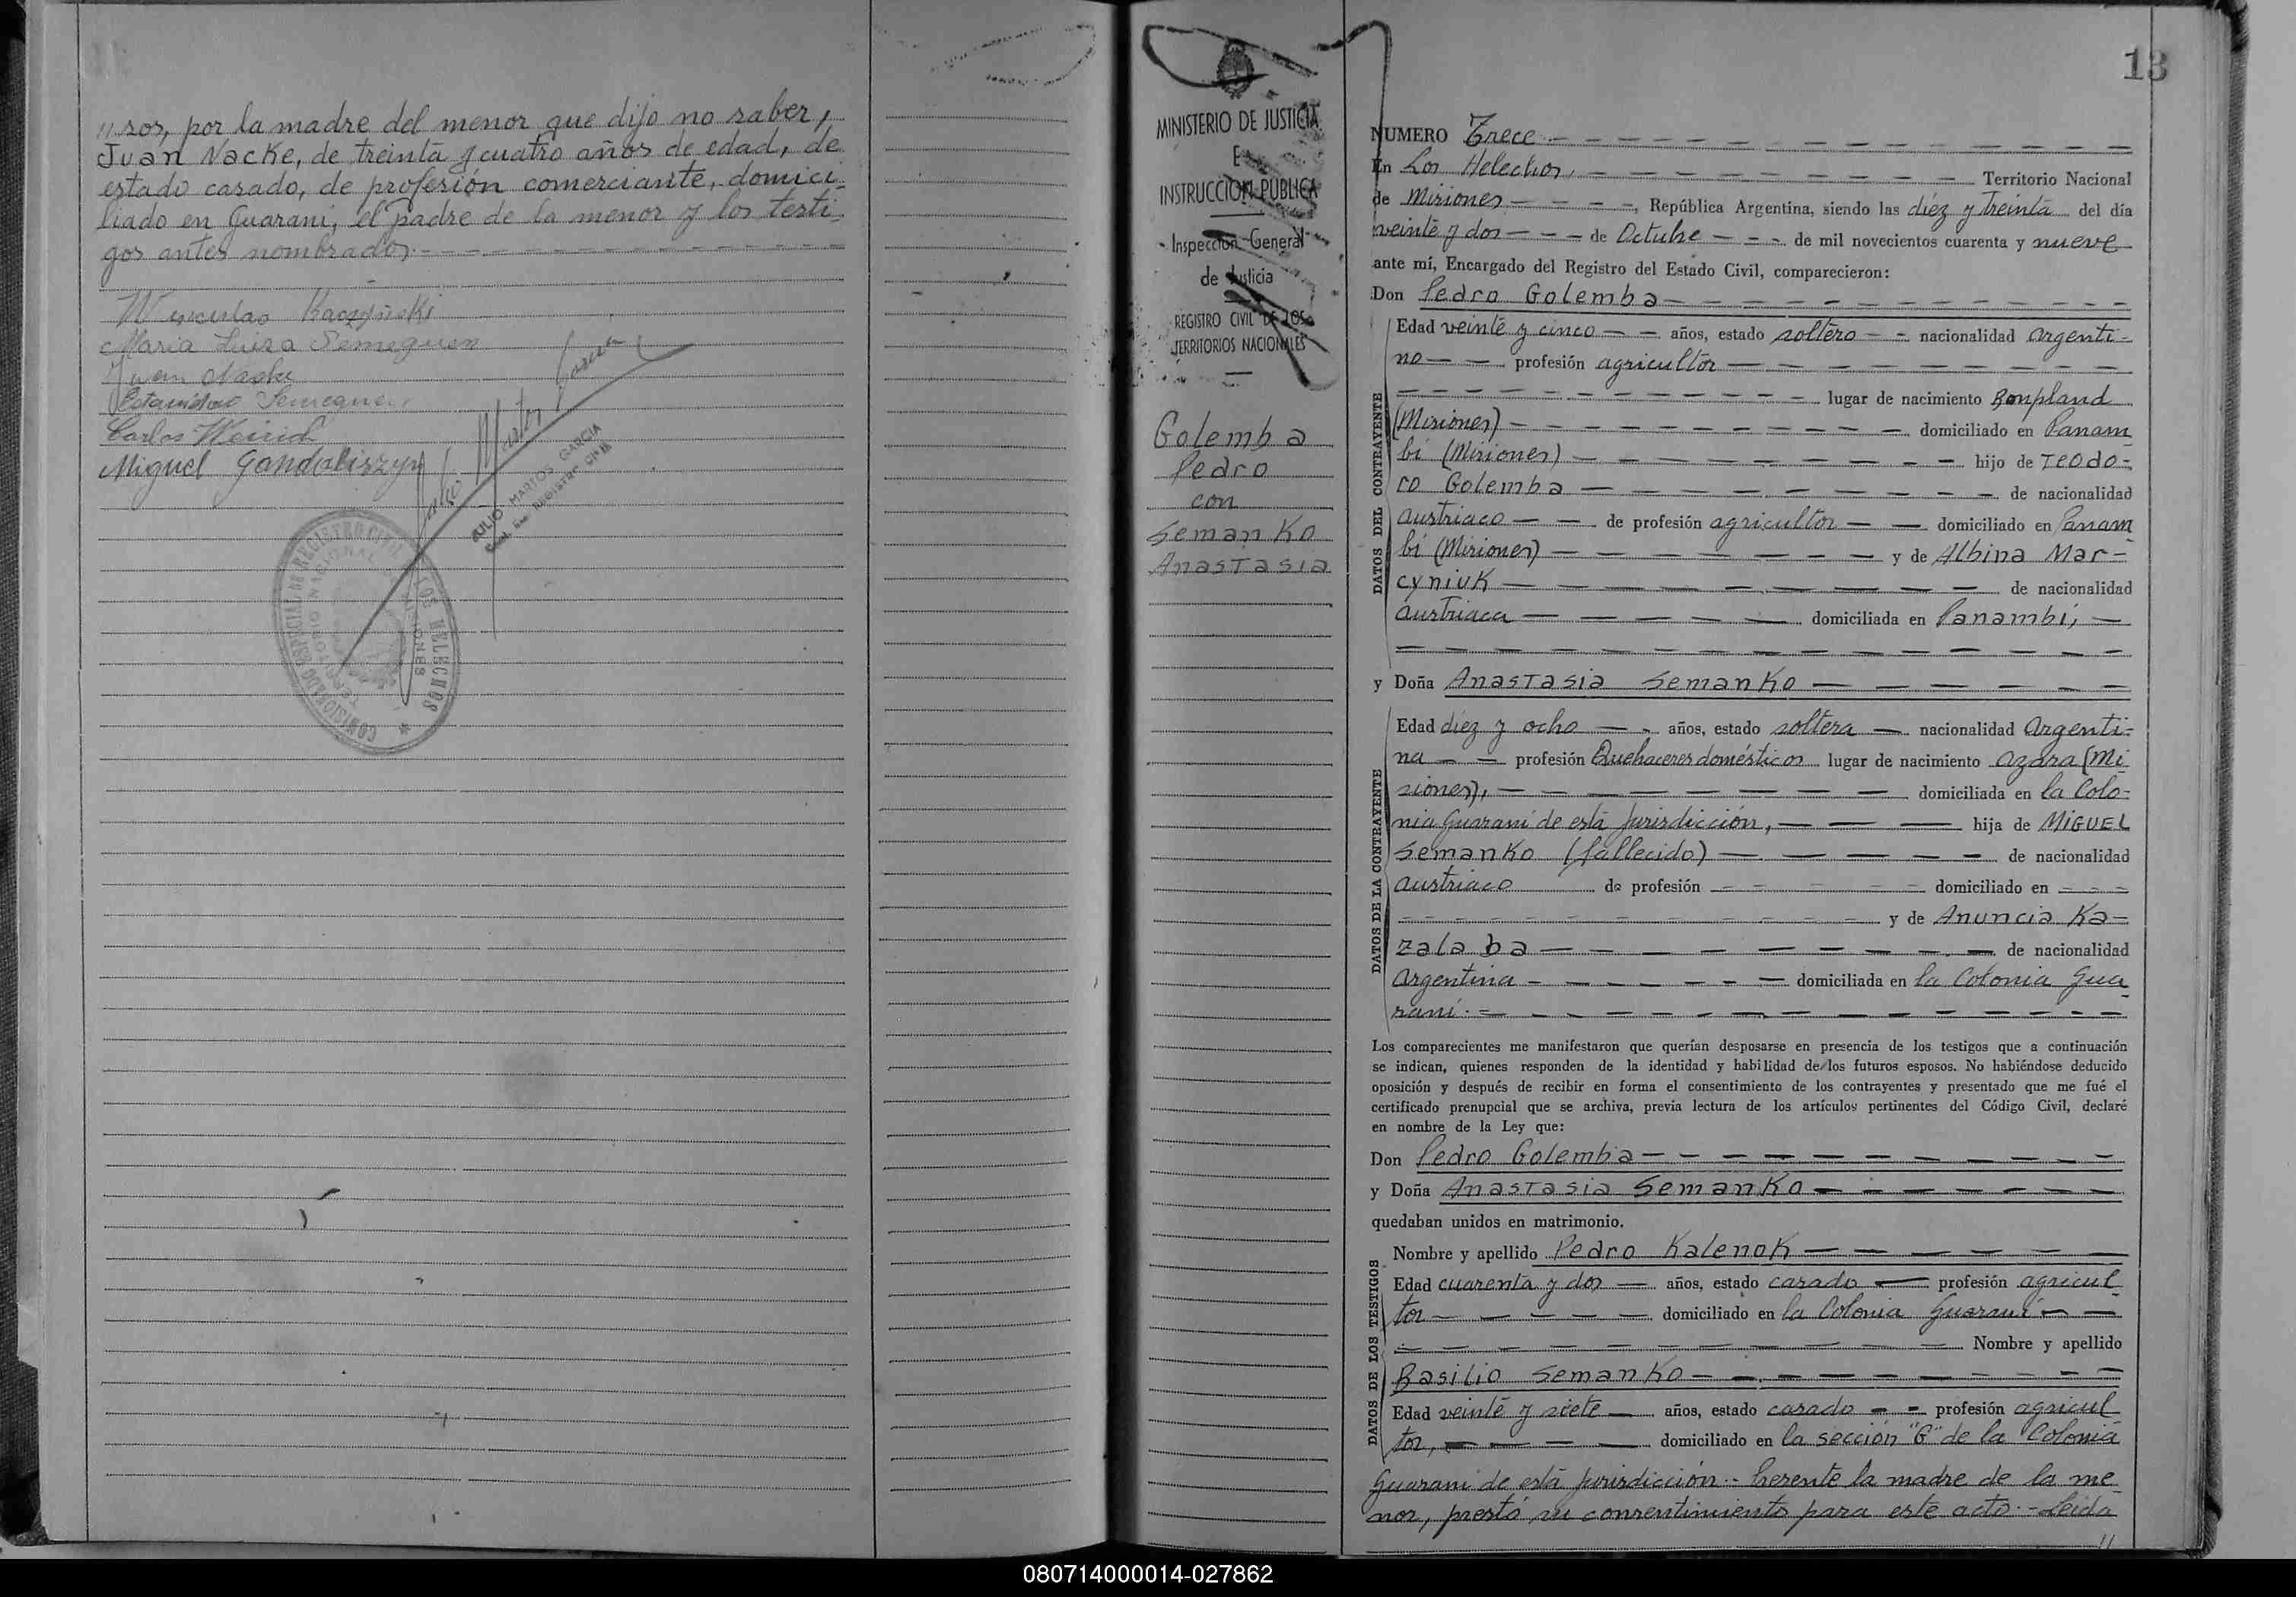 "sos, por la madre del menor que dijo no saber,
Juan Nacke, de treinta y cuatro años de edad, de
estado casado, de profesión comerciante, domici-
liado en Guaraní, el padre de la menor y los testi-
gos antes nombrados.
Maria Luisa Semeguen
Juan Nacke
Carlos
Miguel
JULIO MARTOS GARCIA
COMISIONADO ESPECIAL DE REGISTRO CIVIL
LOS HELECHOS
TERRITORIO NACIONAL MISIONES
MINISTERIO DE JUSTICIA
E
INSTRUCCIÓN PÚBLICA
Inspección General
de Justicia
REGISTRO CIVIL DE LOS
TERRITORIOS NACIONALES
Golemba
Pedro
con
Semanko
Anastasia
13
NUMERO Trece
En Los Helechos, Territorio Nacional
de Misiones, República Argentina, siendo las diez y treinta del día
veinte y dos de Octubre de mil novecientos cuarenta y nueve
ante mí, Encargado del Registro del Estado Civil, comparecieron:
Don Pedro Golemba
DATOS DEL CONTRAYENTE
Edad veinte y cinco años, estado soltero nacionalidad argenti-
no profesión agricultor
lugar de nacimiento Bonpland
(Misiones) domiciliado en Panam
bí (Misiones) hijo de Teodo-
ro Golemba de nacionalidad
austriaco de profesión agricultor domiciliado en Panam
bí (Misiones) y de Albina Mar-
cyniuk de nacionalidad
austriaca domiciliada en Panambí,
y Doña Anastasia Semanko
DATOS DE LA CONTRAYENTE
Edad diez y ocho años, estado soltera nacionalidad argenti-
na profesión Quehaceres domésticos lugar de nacimiento Azara (Mi
siones), domiciliada en la Colo-
nia Guaraní de esta jurisdicción, hija de MIGUEL
Semanko (fallecido) de nacionalidad
austriaco de profesión domiciliado en
y de Anuncia Ka-
zalaba de nacionalidad
argentina domiciliada en la Colonia Gua
raní.
Los comparecientes me manifestaron que querían desposarse en presencia de los testigos que a continuación
se indican, quienes responden de la identidad y habilidad de los futuros esposos. No habiéndose deducido
oposición y después de recibir en forma el consentimiento de los contrayentes y presentado que me fué el
certificado prenupcial que se archiva, previa lectura de los artículos pertinentes del Código Civil, declaré
en nombre de la Ley que:
Don Pedro Golemba
y Doña Anastasia Semanko
quedaban unidos en matrimonio.
DATOS DE LOS TESTIGOS
Nombre y apellido Pedro Kalenok
Edad cuarenta y dos años, estado casado profesión agricul
tor domiciliado en la Colonia Guaraní
Nombre y apellido
Basilio Semanko
Edad veinte y siete años, estado casado profesión agricul
tor, domiciliado en la sección "G" de la Colonia
Guaraní de esta jurisdicción.- Presente la madre de la me
nor, prestó su consentimiento para este acto.- Leida
"
080714000014-027862